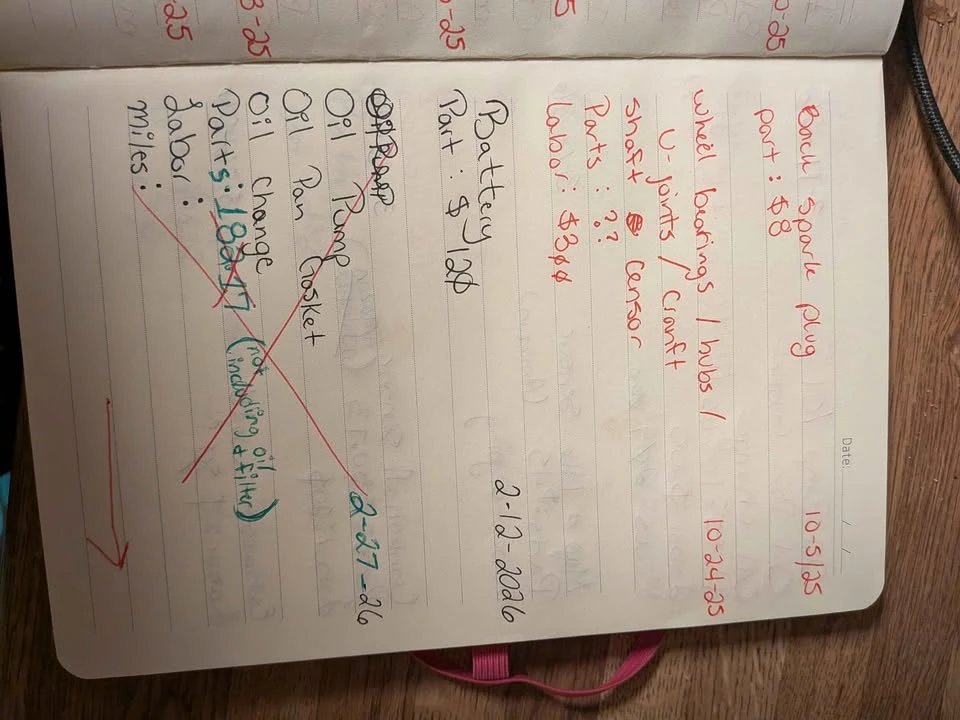 Date: / /
Back spark plug 10-5/25
part: $8
wheel bearings / hubs / 10-24-25
U-joints / Cranft
shaft censor
Parts: ??
Labor: $300
Battery 2-12-2026
Part: $120
2-27-26
Oil Pump
Oil Pan Gasket
Oil change
Parts: (not including oil + filter)
Labor:
miles: